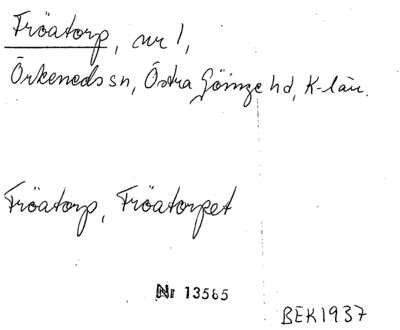 Fröatorp, nr 1,
Örkeneds sn, Östra Göinge hd, K-län.
Fröatorp, Fröatorpet
Nr 13565
BEK1937